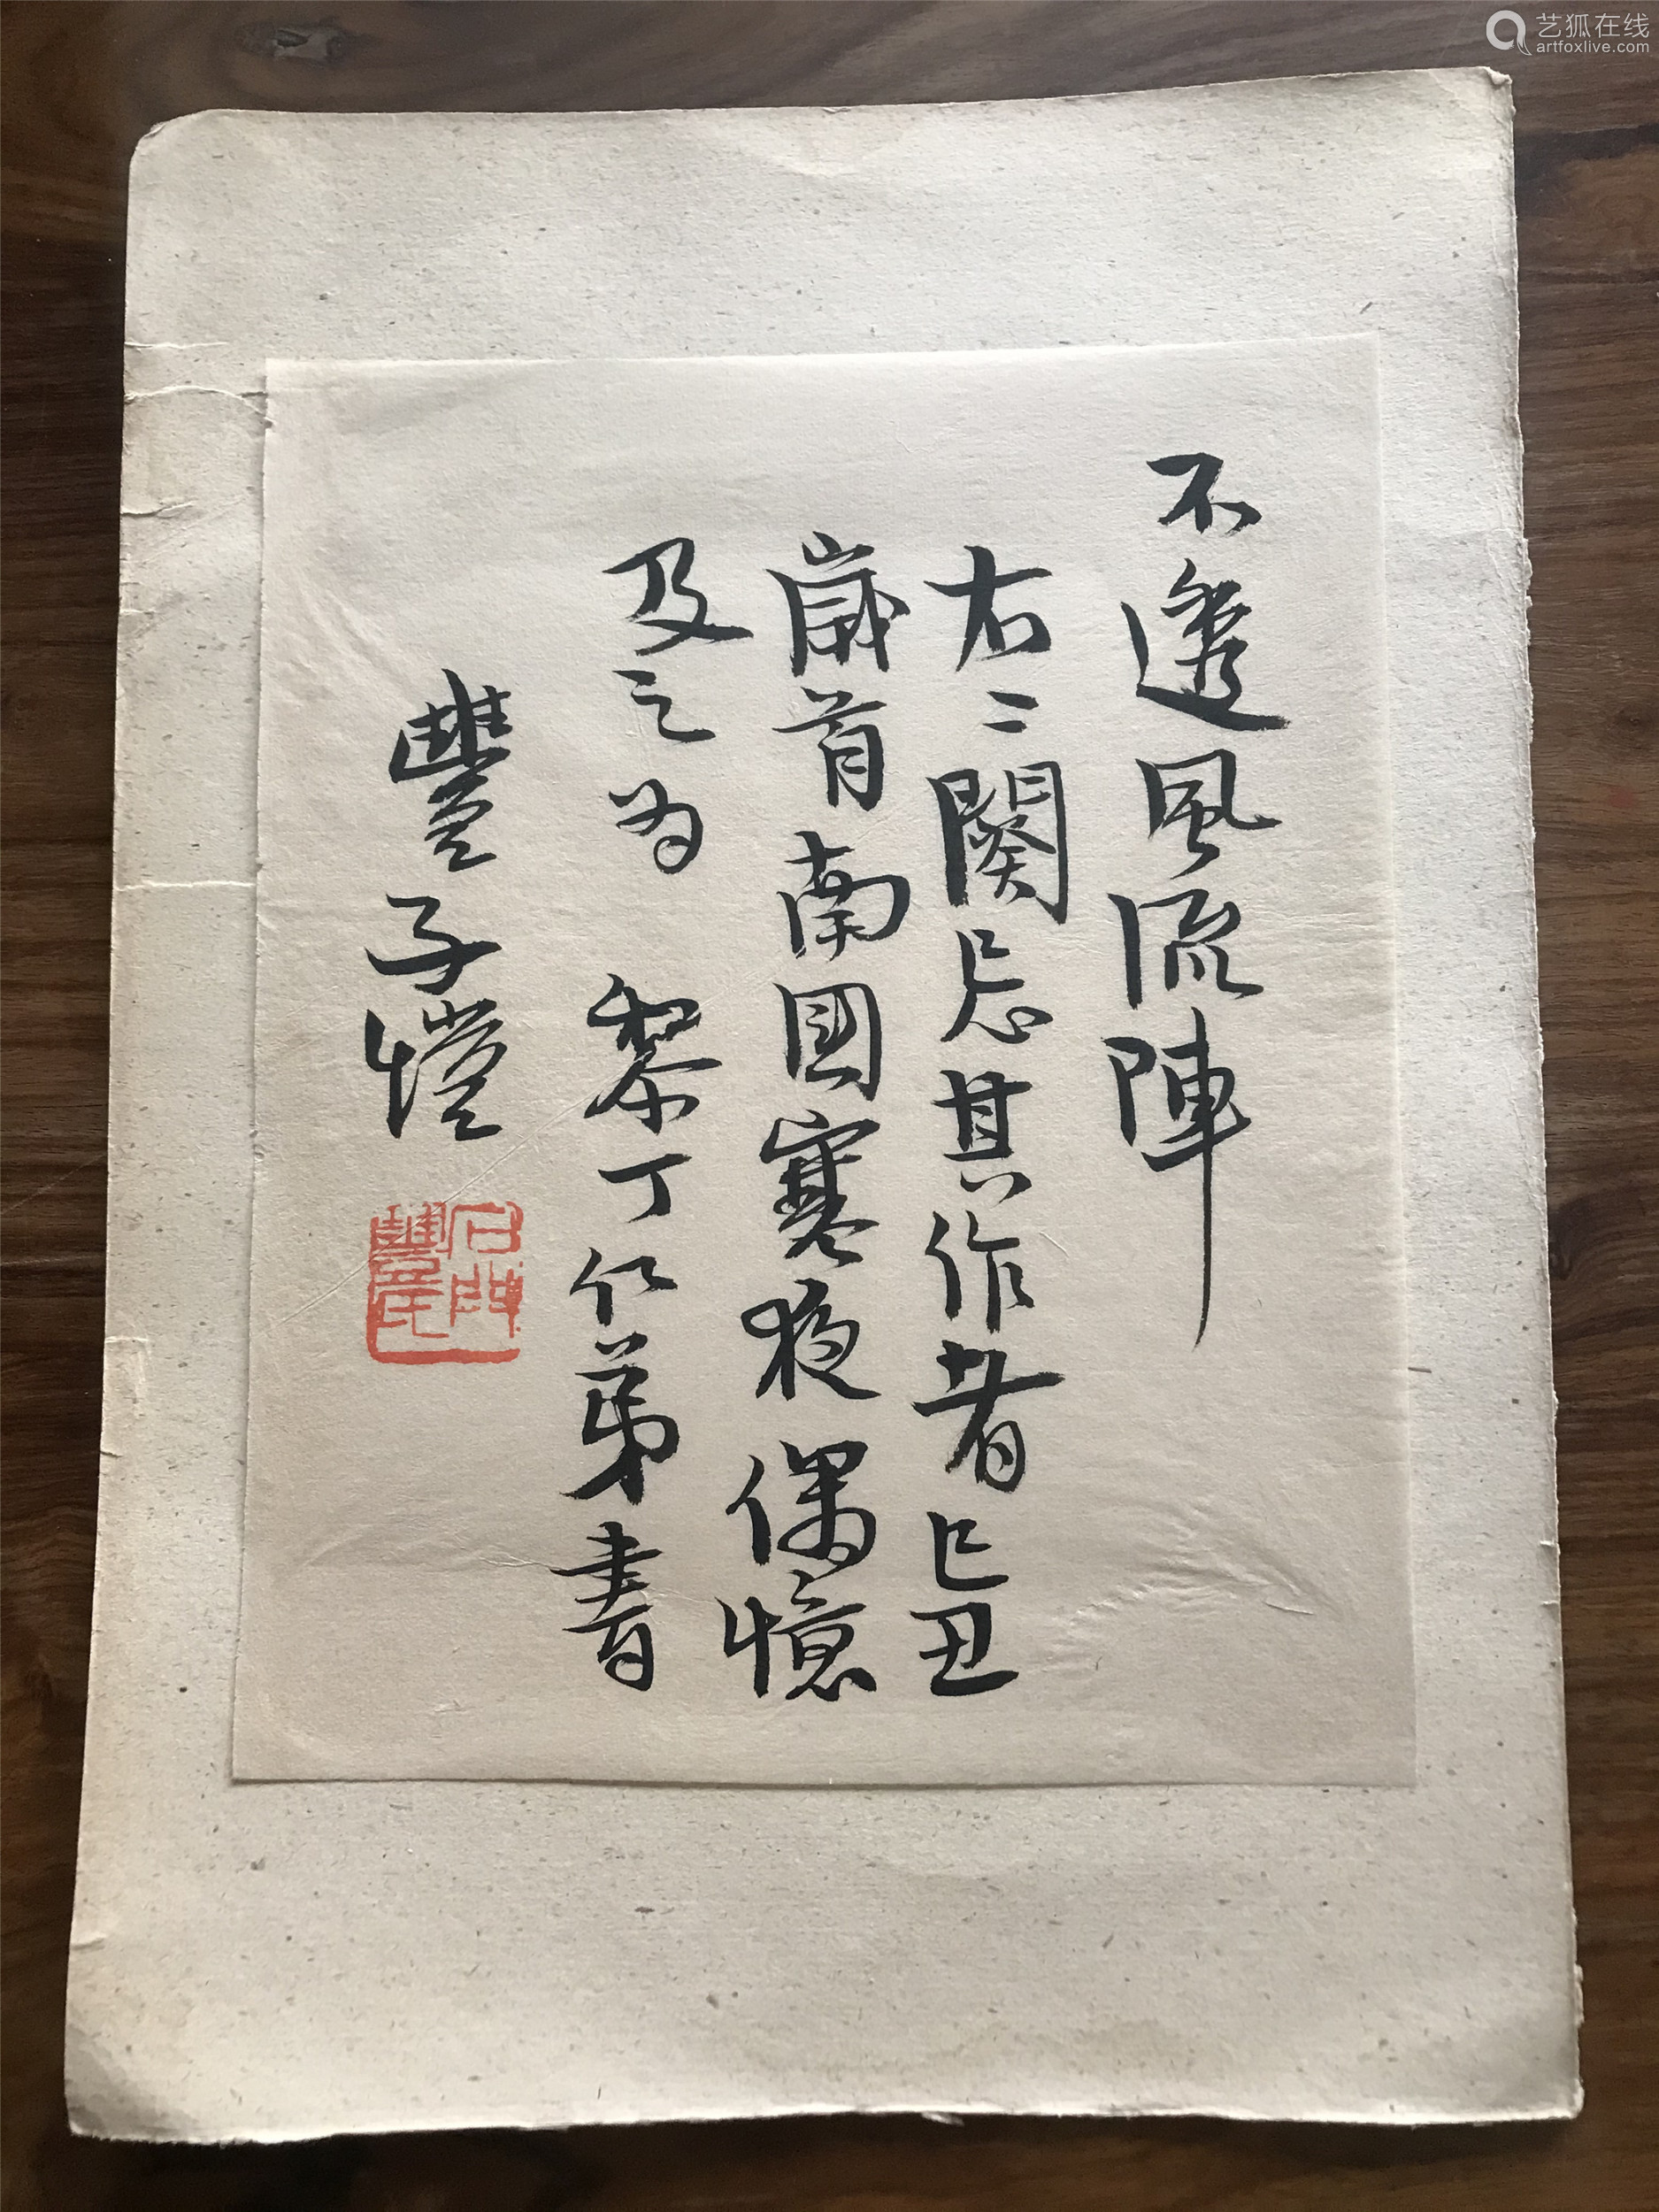 不透風流陣
右二闋忘其作者己丑
歲首南國寒夜偶憶
及之為 黎丁仁弟書
豐子愷
石門豐氏
艺狐在线
artfoxlive.com